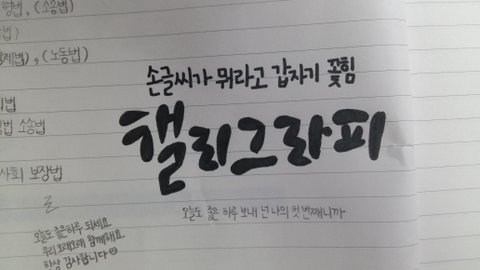 형법, (소송법)
제법), (노동법)
법 소송법
사회 보장법
손글씨가 뭐라고 갑자기 꽂힘
캘리그라피
오늘도 좋은 하루 보내 넌 나의 첫번째니까
오늘도 좋은하루 되세요
우리 오래오래 함께해요
항상 감사합니다